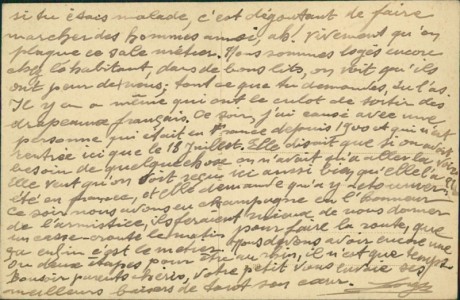 si tu étais malade, c'est dégoutant de faire
marcher des hommes ainsi, ah! vivement qu'on
plaque ce sale métier. Nous sommes logés encore
chez l'habitant, dans de bons lits, on voit qu'ils
ont peur de nous; tout ce que tu demandes, tu l'as.
Il y en a même qui ont le culot de sortir des
drapeaux français. Ce soir, j'ai causé avec une
personne qui était en France depuis 1900 et qui n'est
rentrée ici que le 18 Juillet. Elle disait que si on avait
besoin de quelque chose on n'avait qu'à aller la voir
Elle veut qu'on soit reçu ici aussi bien qu'elle l'a
été en France, et elle demande qu'à y retourner.
Ce soir nous avons eu champagne en l'honneur
de l'armistice, ils feraient mieux de nous donner
un casse-croute le matin pour faire la route, que
enfin c'est le métier. Nous devons avoir encore une
ou deux étapes pour être au repos, il n'est que temps.
Bonsoir parents chéris, votre petit vous envoie ses
meilleurs baisers de tout son cœur.